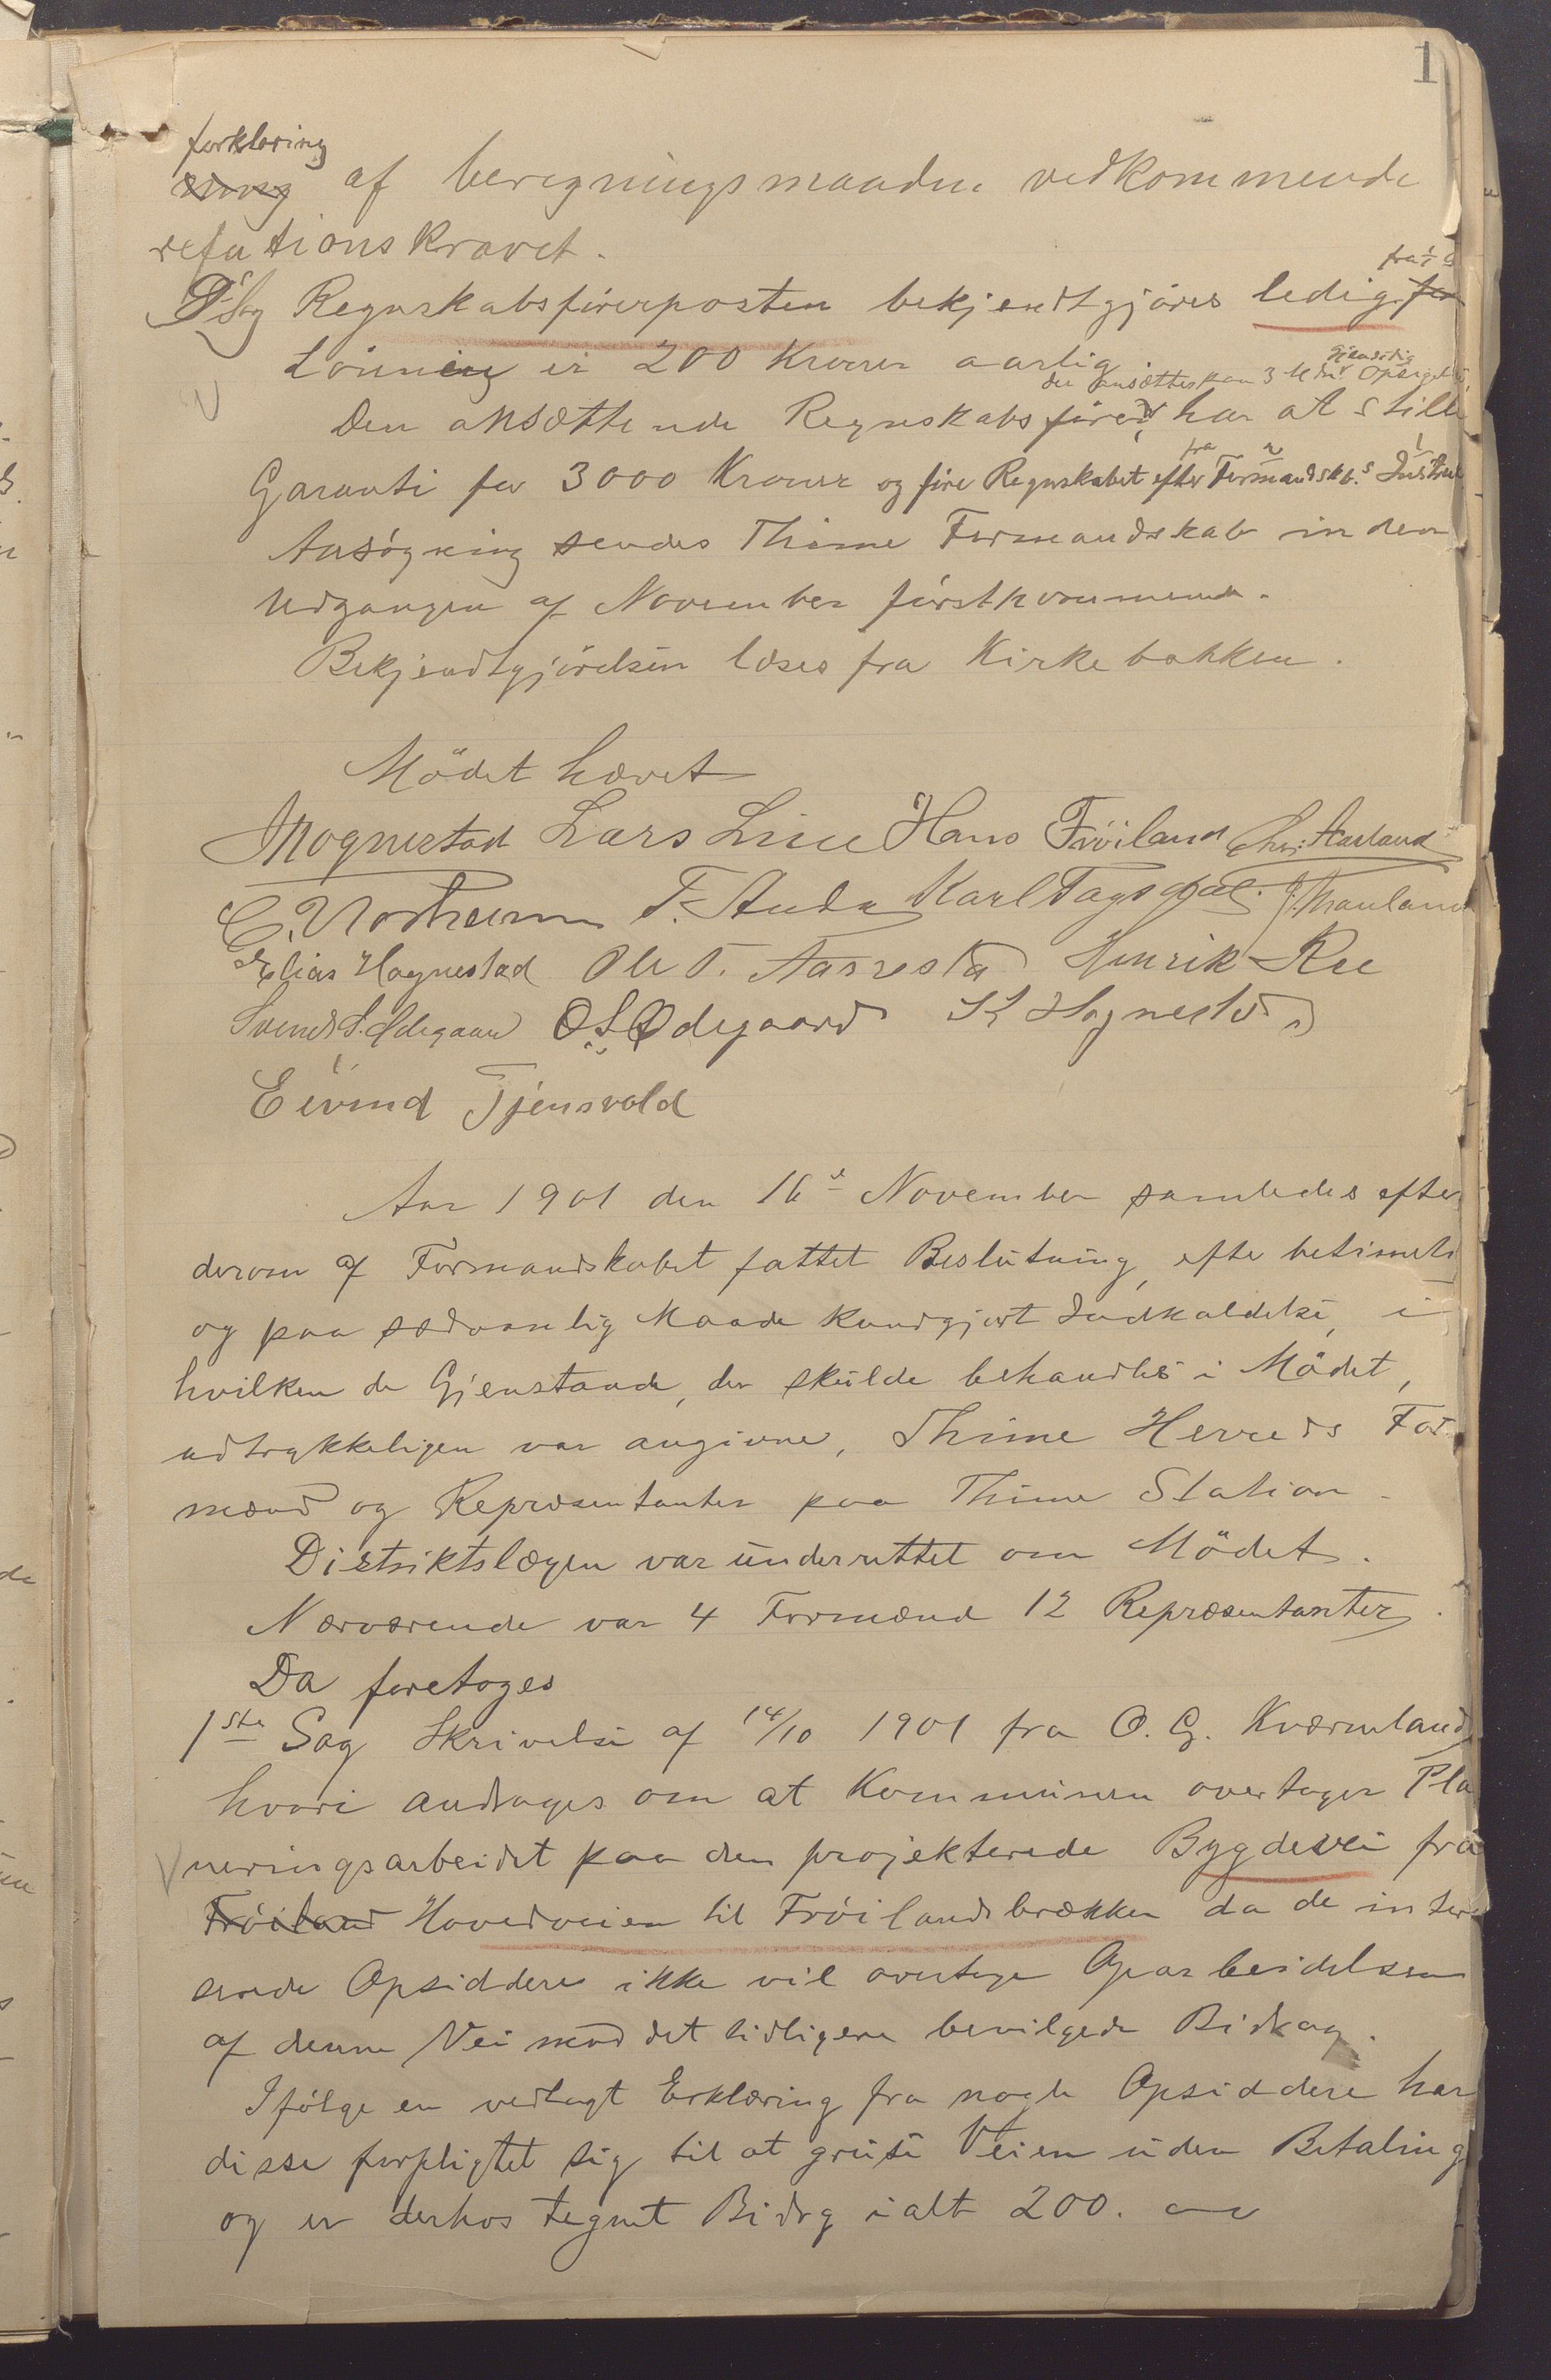 1
forklaring
af beregningsmaaden vedkommende
refutionskravet.
Sag Regnskabsförerposten bekjendtgjöres ledig fra 1/1
Lönning er 200 Kroner aarlig.
der ansættes paa 3 Mdrs gjensidig Opsigelse
Den ansættende Regnskabsförer har at stille
Garanti for 3000 Kroner og före Regnskabet efter Formandsk.s Instrux
Ansögning sendes Thime Formandskab inden
Udgangen af November förstkommende.
Bekjendtgjörelsen læses fra Kirkebakken.
Mödet hævet
Mognestad Lars Line Hans Fröiland Chr. Aarland
Norheim F. Auda Karl Tagsdal. J. Braulan
Elias Hognestad Ole T. Aasresta Henrik Ree
Svend S. Ødegaar O S Ødegaard Hognesta
Eivind Tjensvold
Aar 1901 den 16de November samledes efter
derom af Formandskabet fattet Beslutning, efter betimelig
og paa sædvanlig Maade kundgjort Indkaldelse, i
hvilken de Gjenstande, der skulde behandles i Mödet,
udtrykkeligen var angivne, Thime Herreds For
mænd og Repræsentanter paa Thime Station.
Distriktslægen var underrettet om Mödet.
Nærværende var 4 Formænd 12 Repræsentanter.
Da foretoges
1ste Sag Skrivelse af 14/10 1901 fra O. G. Kværnland
hvori andrages om at Kommunen overtager Pla
neringsarbeidet paa den projekterede Bygdevei fra
Fröiland Hovedveien til Fröilandsbrækken da de intere
serede Opsiddere ikke vil overtage Oparbeidelsen
af denne Vei mod det tidligere bevilgede Bidrag.
Ifölge en vedlagt Erklæring fra nogle Opsiddere har
disse forpligtet sig til at gruse Veien uden Betaling
og er derhos tegnet Bidrg ialt 200.